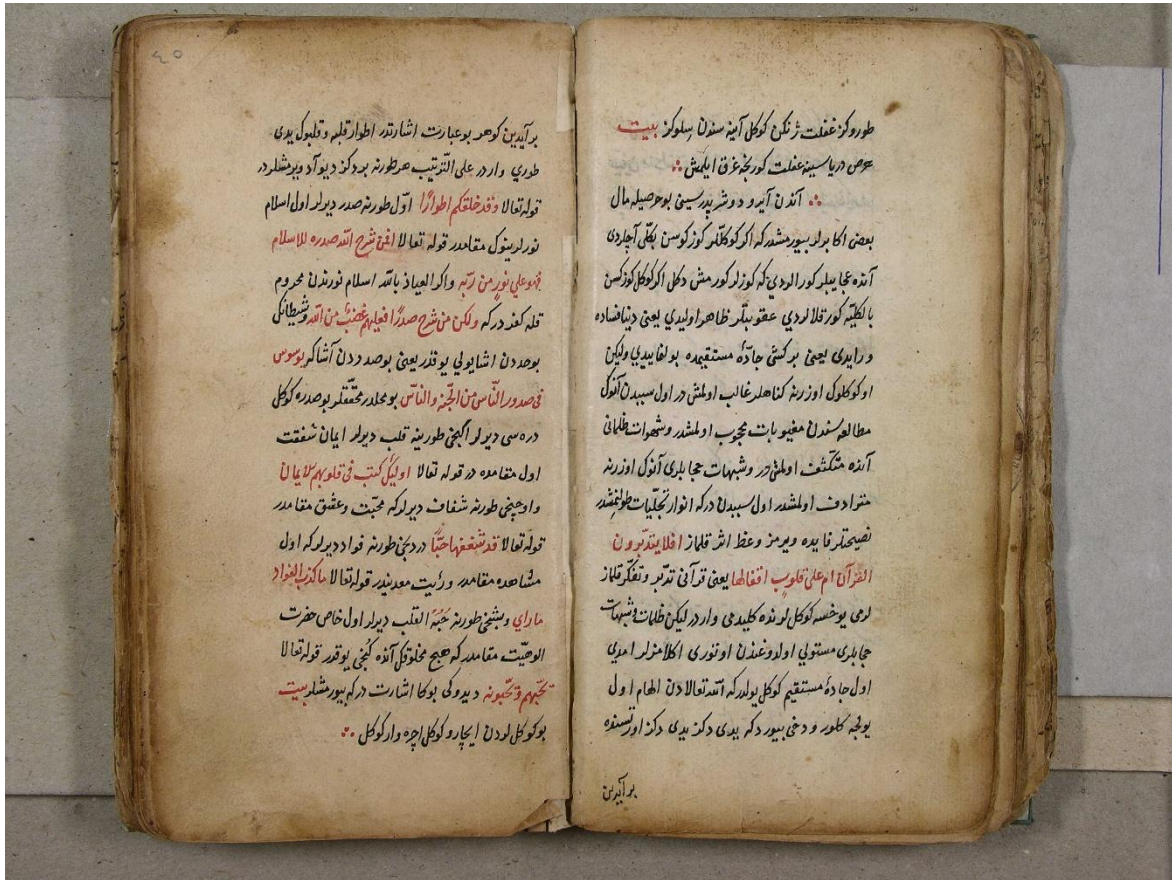 طوروكز غفلت ژنكن كوكل آينه سندن سلوكز بيت
حرص درياسينه غفلت كوريجه غرق ايلمش
آندن آيرو دوشر پدرسينى بوحرصيله مال
بعضى اكابرلر بيورمشدركه اكر كوكللر كوز كوسن بكلى آچلردى
آنده عجايبلر كورالردي كه كوزلر كورمش دكل اكر كوكل كوزكسن
بالكليّه كورقلالردي عقوبتلر ظاهر اوليدي يعنى دنيا فساده
ورايدى يعنى بركشى جادّهٔ مستقيمده بولنايدي وليكن
اوكوكلوك اوزرنه كناهلر غالب اولمش در اول سببدن آنوك
مطالعه سندن مغيوبات محجوب اولمشدر وشهوات ظلمانى
آنده متكثّف اولمش در وشبهات حجابلرى آنوك اوزرنه
مترادف اولمشدر اول سببدن دركه انوار تجلّيات طولنمشدر
نصيحتلر فايده ويرمز وعظ اثر قلماز افلا يتدبّرون
القرآن ام على قلوبٍ اقفالها يعنى قرآنى تدبّر وتفكّر قلماز
لرمى يوخسه كوكللرنده كليدمى واردر ليكن ظلمات وشبهات
حجابلرى مستولي اولدوغندن اوتورى اكلامزلر امدي
اول جادهٔ مستقيم كوكل يولدركه الله تعالادن الهام اول
يولجه كلور ودخى بيوردكه يدى دكز يدى دكز اورتسنده
برآيدين
٤٥
برآيدين كوهر بوعبارت اشارتدر اطوار قلبه وقلبوك يدى
طورى واردر على التّرتيب هرطورنه بردكز ديو آد ويرمشلردر
قوله تعالا وقد خلقكم اطوارًا اوّل طورنه صدر ديرلر اول اسلام
نورلرينوك مقامدر قوله تعالا افمن شرح الله صدره للاسلام
فهو على نورٍ من ربّه واكر العياذ بالله اسلام نورندن محروم
قله كفردركه ولكن من شرح صدرًا فعليهم غضبٌ من الله وشيطانكى
بوحددن اشا يولي يوقدر يعنى بوصددن آشاكه يوسوس
فى صدور النّاس من الجّنه والنّاس بو محلدر محقّقلر بوصدره كوكل
دره سى ديرلر ايكنجى طورينه قلب ديرلر ايمان شفقت
اول مقامده در قوله تعالا اوليك كتب فى قلوبهم الايمان
واوچنجى طورنه شغاف ديرلركه محبّت وعشق مقامدر
قوله تعالا قد شغفها حبًّا دردنجى طورنه فواد ديرلركه اول
مشاهده مقامدر ورؤيت معدنيدر قوله تعالا ماكذب الفواد
ماراي وبشنجى طورنه حُبّةُ القلب ديرلر اول خاص حضرت
الوهيّت مقامدركه هيچ مخلوقك آنده كنجى يوقدر قوله تعالا
يحبّهم ويحبّونه ديدوكى بوكا اشارت دركه بيورمشلر بيت
بوكوكللردن ايچارو كوكل اچره وار كوكل